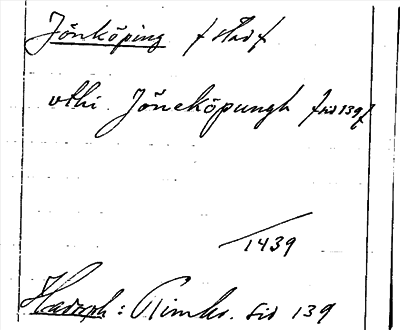 Jönköping / stad /
uthi Jöneköpungh / sid 139 /
1439
Hadorph: Rimkr. Sid 139